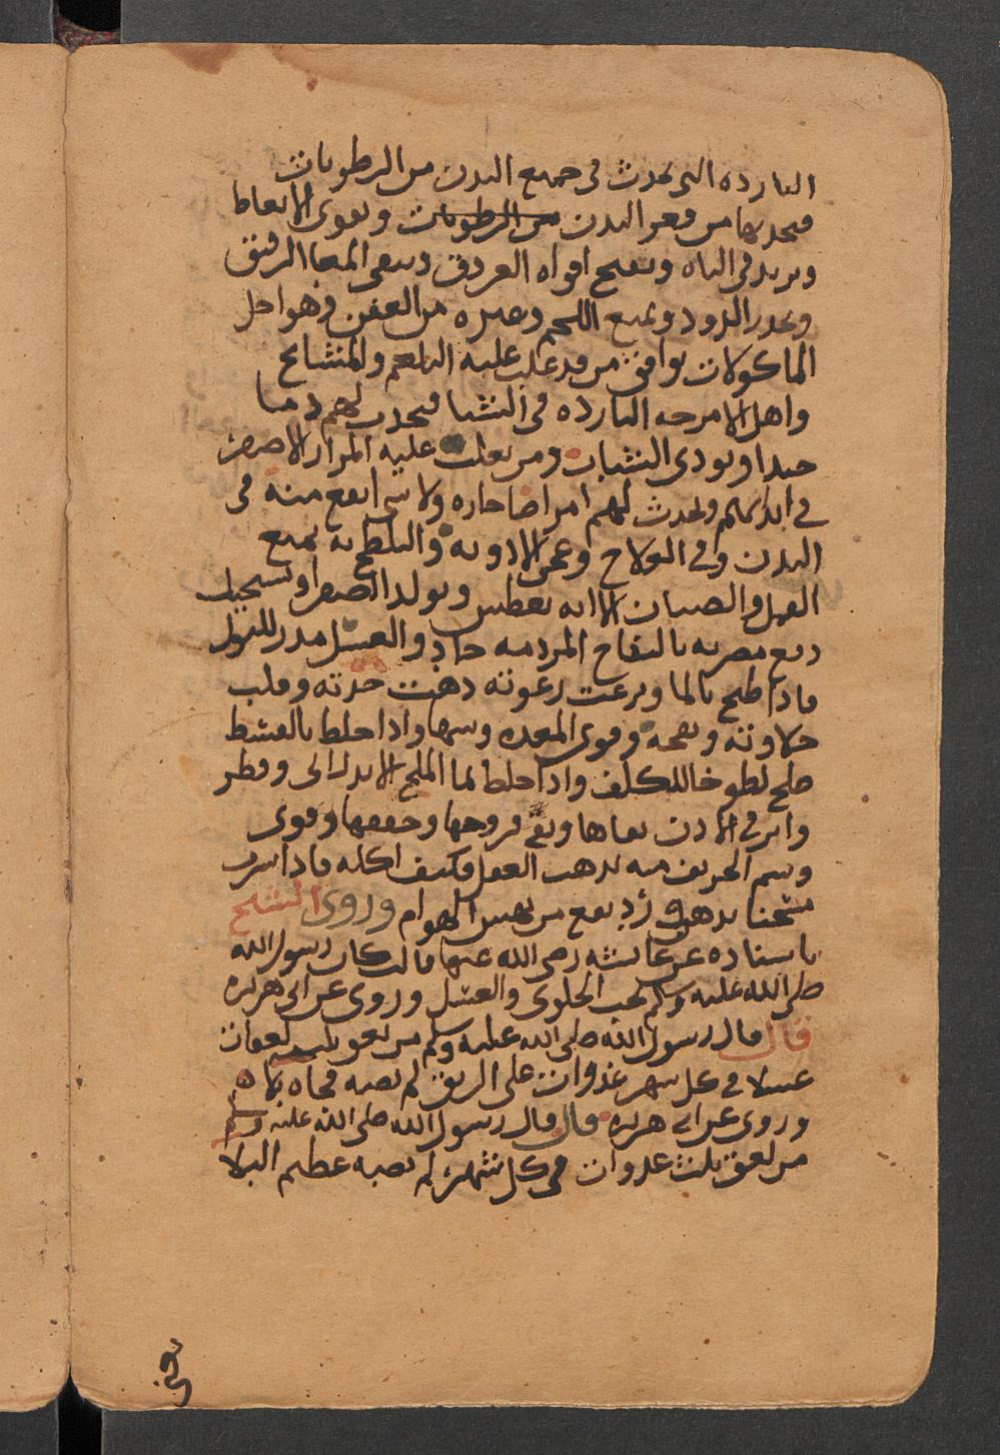 البارده التى تحدث فى جميع البدن من الرطوبات
فيجذبها من قعر البدن من الرطوبات ويقوى الانعاظ
ويزيد فى الباه ويفتح افواه العروق وينقى المعا الرقيق
ويحدر الدود ويمنع اللحم وغيره من العفن وهو اجل
الماكولات يوافق من قد غلب عليه البلغم والمشايخ
واهل الامزجه البارده فى الشتا فيحدث لهم دما
جيدا ويوذى الشباب ومن يغلب عليه المرار الاصفر
فى ابدانهم ويحدث لهم امراضا حاره ولا شى انفع منه فى
البدن وفى العلاج وعجن الادويه والتلطخ به يمنع
القمل والصيبان الا انه يعطش ويولد الصفرا ويستحيل
دفع مضرته بالتفاح المز دمه حاد والعسل مدر للبول
فاذا طبخ بالما ونزعت رغوته ذهبت حدته وقلت
حلاوته ونفخه وقوى المعده وسمها واذا خلط بالقسط
صلح لطوخا للكلف واذا خلط بما الملح الاندرانى وقطر
فاتر فى الاذن نقاها ونقى قروحها وجففها وقوى
وشم الحريف منه يذهب العقل فكيف اكله فاذا شرب
سخنا بدهن ورد نفع من نهش الهوام وروى الشيخ
باسناده عن عائشه رضى الله عنها قالت كان رسول الله
صلى الله عليه وسلم يحب الحلوى والعسل وروى عن ابى هريره
قال قال رسول الله صلى الله عليه وسلم من لعق ثلث لعقات
عسلا فى كل شهر غدوات على الريق لم يصبه فجاه بلاه
وروى عن ابى هريره قال قال رسول الله صلى الله عليه وسلم
من لعق ثلث غدوات فى كل شهر لم يصبه عظيم البلا